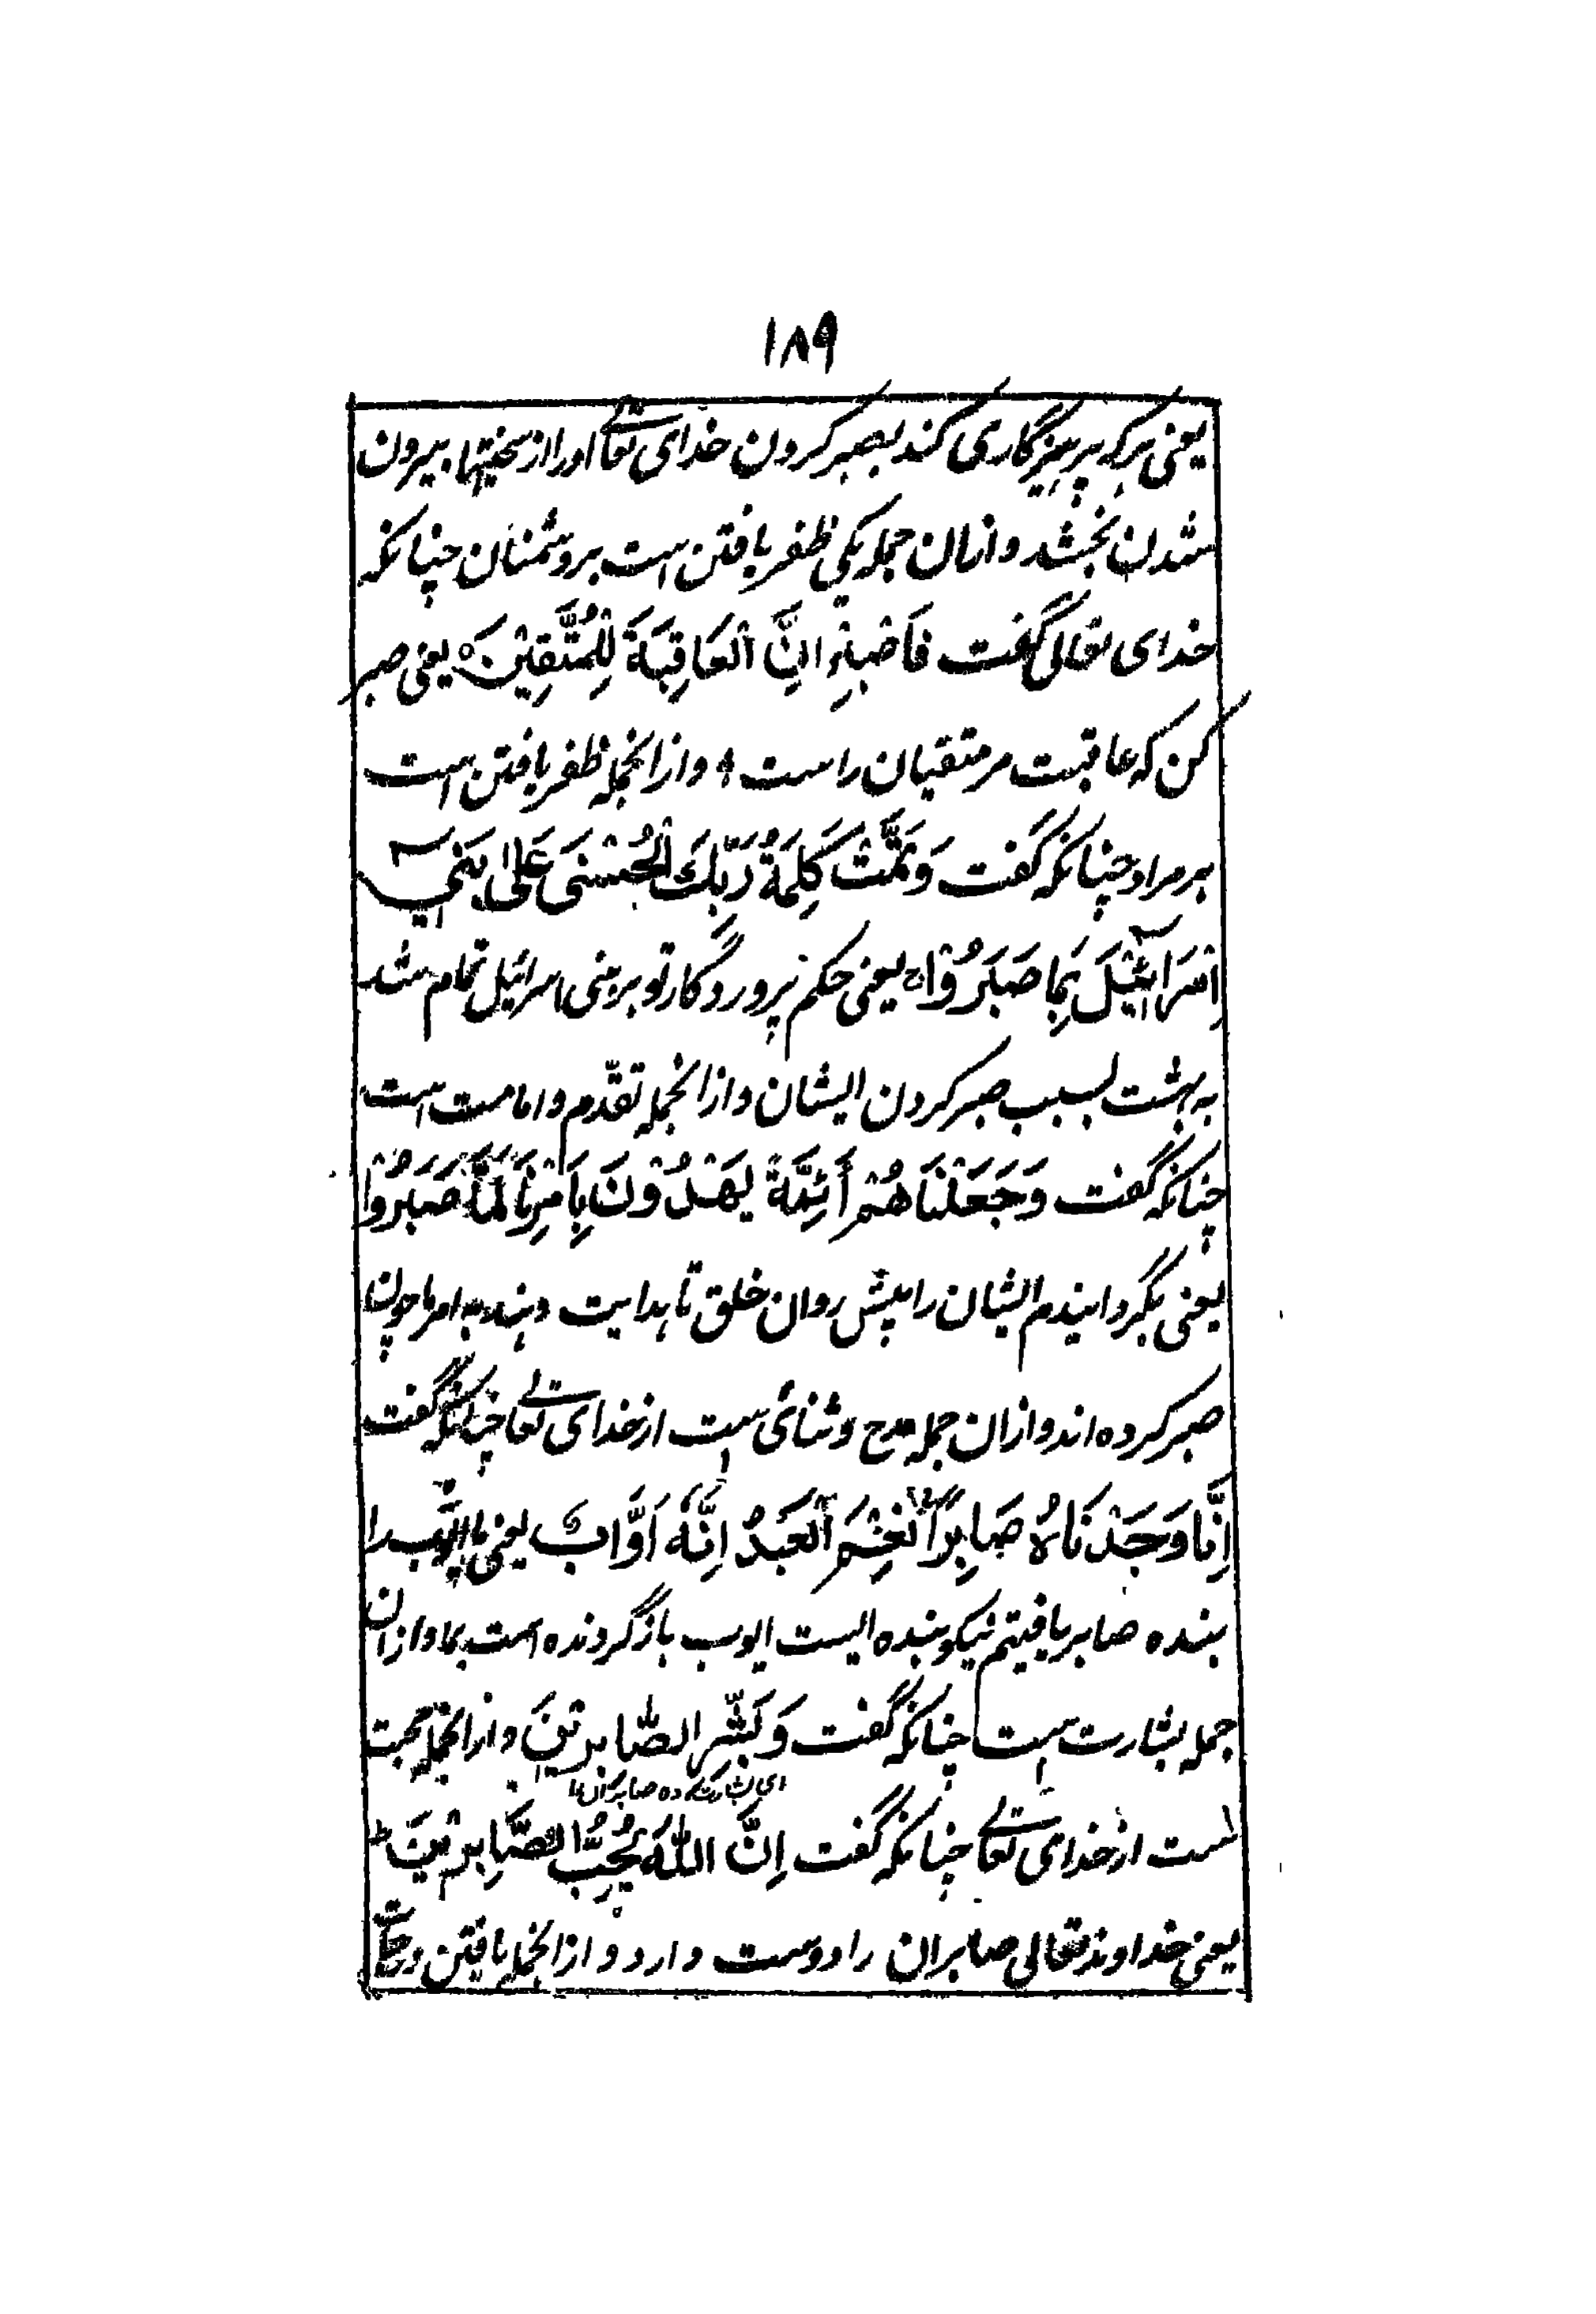 ۱۸۹
یعنی هرکه پرهیزگاری کند بصبر کردن خدای تعالے اورا از سختیها بیرون
شدن بخشد و ازان جمله یکی ظفر یافتن است بر دشمنان چنانکه
خدای تعالی گفت فَاصْبِرْ اِنَّ الْعَاقِبَةَ لِلْمُتَّقِیْنَ ه یعنی صبر
کن که عاقبت مر متقیان راست و ازانجمله ظفر یافتن است
بر مراد چنانکه گفت وَتَمَّتْ کَلِمَةُ رَبِّكَ الْحُسْنَی عَلَی بَنِیْ
اِسْرَائِیْلَ بِمَا صَبَرُوْا ج یعنی حکم پروردگار تو بر بنی اسرائیل تمام شد
به بهشت بسبب صبر کردن ایشان و ازانجمله تقدّم و امامت است
چنانکه گفت وَجَعَلْنَاهُمْ أَئِمَّةً یَهْدُوْنَ بِاَمْرِنَا لَمَّا صَبَرُوْا
یعنی بگردانیدم ایشان را پیش روان خلق تا هدایت دهند به امر ما چون
صبر کرده اند و ازان جمله مدح و ثنای است از خدای تعالے چنانکه گفت
اِنَّا وَجَدْنَاهُ صَابِرًا نِعْمَ الْعَبْدُ اِنَّهٗ اَوَّابٌ یعنی ما ایوب را
بنده صابر یافتیم نیکو بنده الیست ایوب بازگردنده است بما و ازان
جمله بشارت است چنانکه گفت وَبَشِّرِ الصَّابِرِیْنَ و ازانجمله محبت
ای بشارت ده صابران را
است از خدای تعالے چنانکه گفت اِنَّ اللّٰهَ یُحِبُّ الصَّابِرِیْنَ ط
یعنی خداوند تعالی صابران را دوست دارد و ازانجمله یافتن درجات